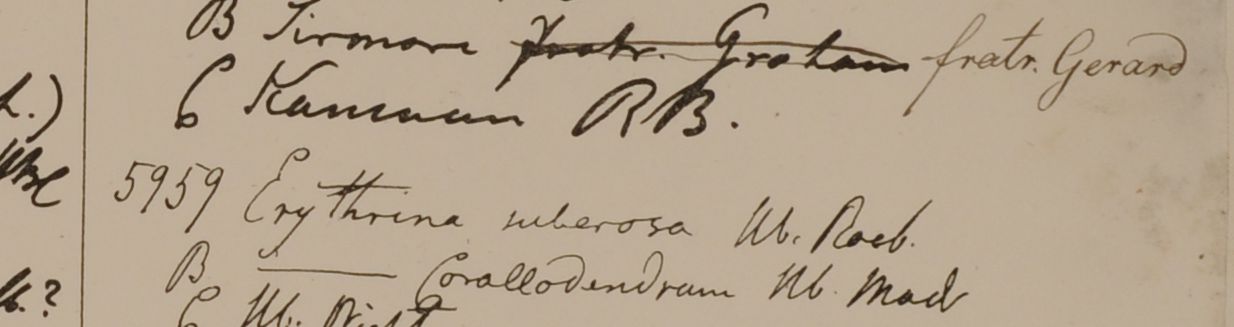 B Sirmore fratr. Graham fratr. Gerard
C Kamaun RB.
5959 Erythrina suberosa Hb. Roxb.
B —— Corallodendrum Hb. Mad
C Hb. Wight